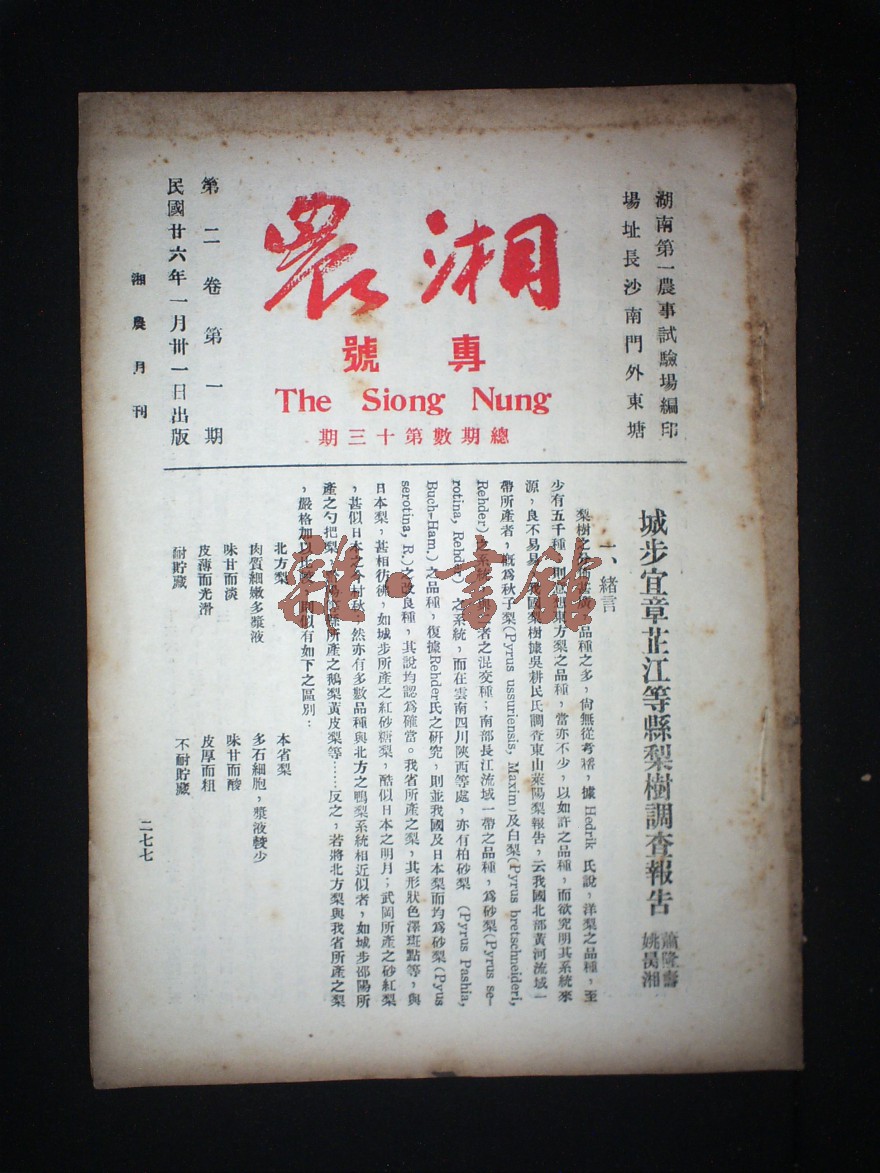 湖南第一農事試驗場編印
場址長沙南門外東塘
湘農
專號
The Siong Nung
總期數第十三期
第二卷第一期
民國廿六年一月卅一日出版
湘農月刊
城步宜章芷江等縣梨樹調查報告
蕭隆壽
姚昺湘
一、緒言
梨樹之品種之多，尙無從考稽，據 Hedrik 氏說，洋梨之品種，至
少有五千種，則東方梨之品種，當亦不少，以如許之品種，而欲究明其系統來
源，良不易易，我國梨樹據吳耕民氏調查東山萊陽梨報告，云我國北部黃河流域一
帶所產者，概爲秋子梨(Pyrus ussuriensis, Maxim)及白梨(Pyrus bretschneideri,
Rehder)之系統之混交種；南部長江流域一帶之品種，爲砂梨(Pyrus se-
rotina, Rehder)之系統，而在雲南四川陝西等處，亦有柏砂梨 (Pyrus Pashia,
Buch-Ham.)之品種，復據Rehder氏之研究，則並我國及日本梨而均爲砂梨(Pyus
serotina, R.)之改良種，其說均認爲確當。我省所產之梨，其形狀色澤斑點等，與
日本梨，甚相彷彿，如城步所產之紅砂糖梨，酷似日本之明月；武岡所產之砂紅梨
，甚似日本之今村秋，然亦有多數品種與北方之鴨梨系統相近似者，如城步邵陽所
產之勺把梨，縣所產之鵝梨黃皮梨等……反之，若將北方梨與我省所產之梨
，嚴格加以比較，則似有如下之區別：
北方梨 本省梨
肉質細嫩多漿液 多石細胞，漿液較少
味甘而淡 味甘而酸
皮薄而光滑 皮厚而粗
耐貯藏 不耐貯藏
二七七
雜·書館